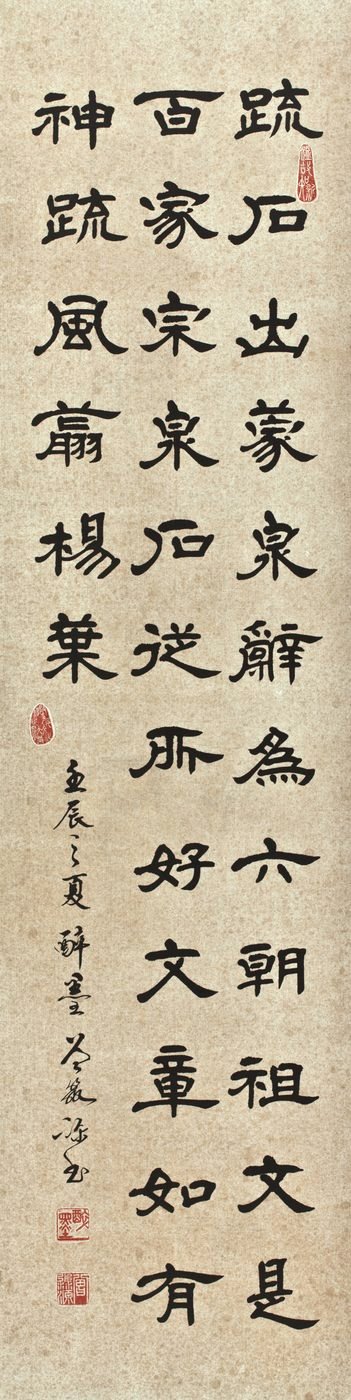 疏石出蒙泉辭為六朝祖文是
百家宗泉石從所好文章如有
神疏風翦楊葉
壬辰之夏醉墨
醉墨